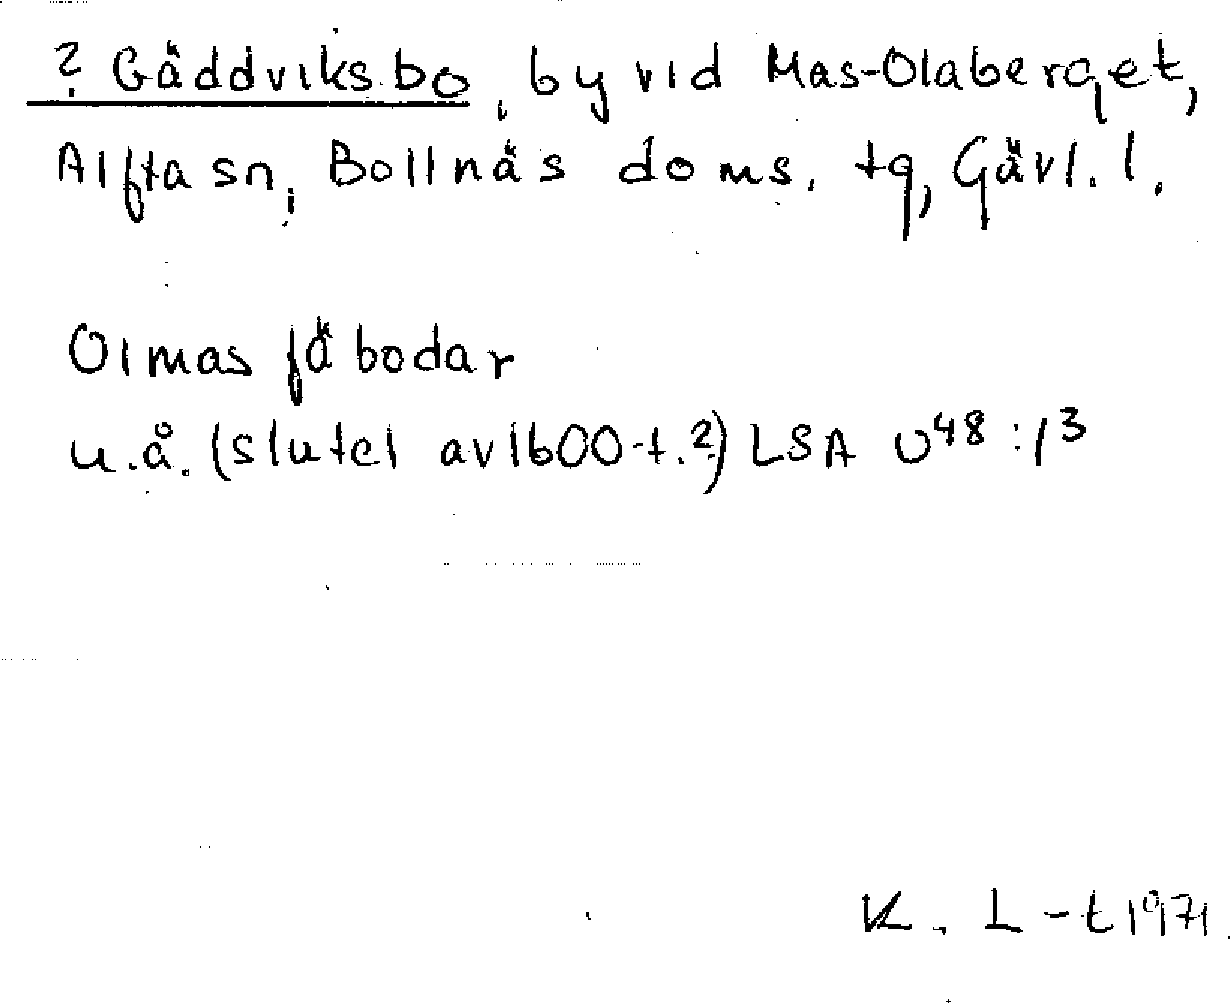 ? Gäddviksbo, by vid Mas-Olaberget,
Alfta sn, Bollnäs doms. tg, Gävl. l.
Olmas fäbodar
u.å. (slutet av 1600-t.?) LSA U48:13
K. L-t 1971.